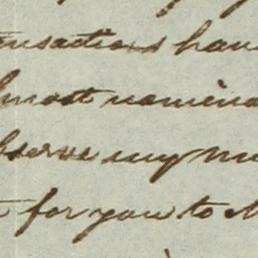 transactions have
almost nomina
bserve my m
for you to